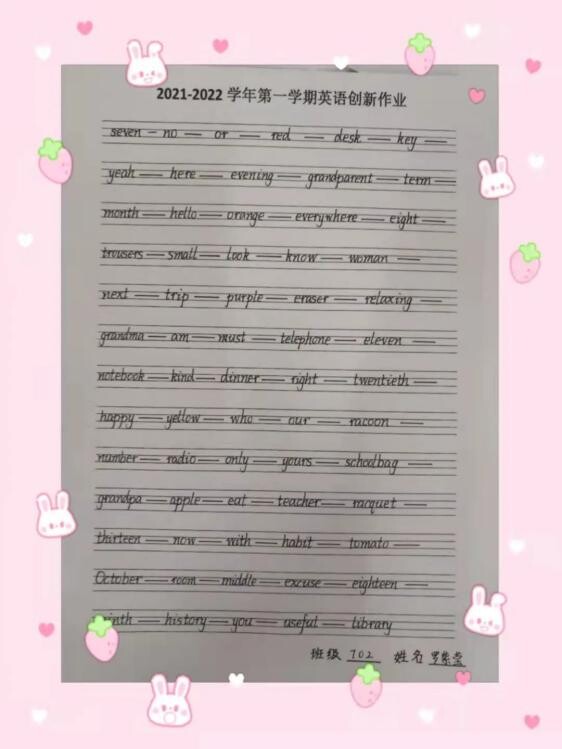 2021-2022 学年第一学期英语创新作业
seven — no — or — red — desk — key —
yeah — here — evening — grandparent — term —
month — hello — orange — everywhere — eight —
trousers — small — look — know — woman —
next — trip — purple — eraser — relaxing —
grandma — am — must — telephone — eleven —
notebook — kind — dinner — right — twentieth —
happy — yellow — who — our — racoon —
number — radio — only — yours — schoolbag —
grandpa — apple — eat — teacher — racquet —
thirteen — now — with — habit — tomato —
October — room — middle — excuse — eighteen —
— history — you — useful — library
班级 702 姓名